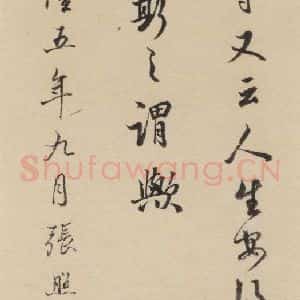 又云人生安得
斯之謂歟
隆五年九月張照
Shufawang.CN